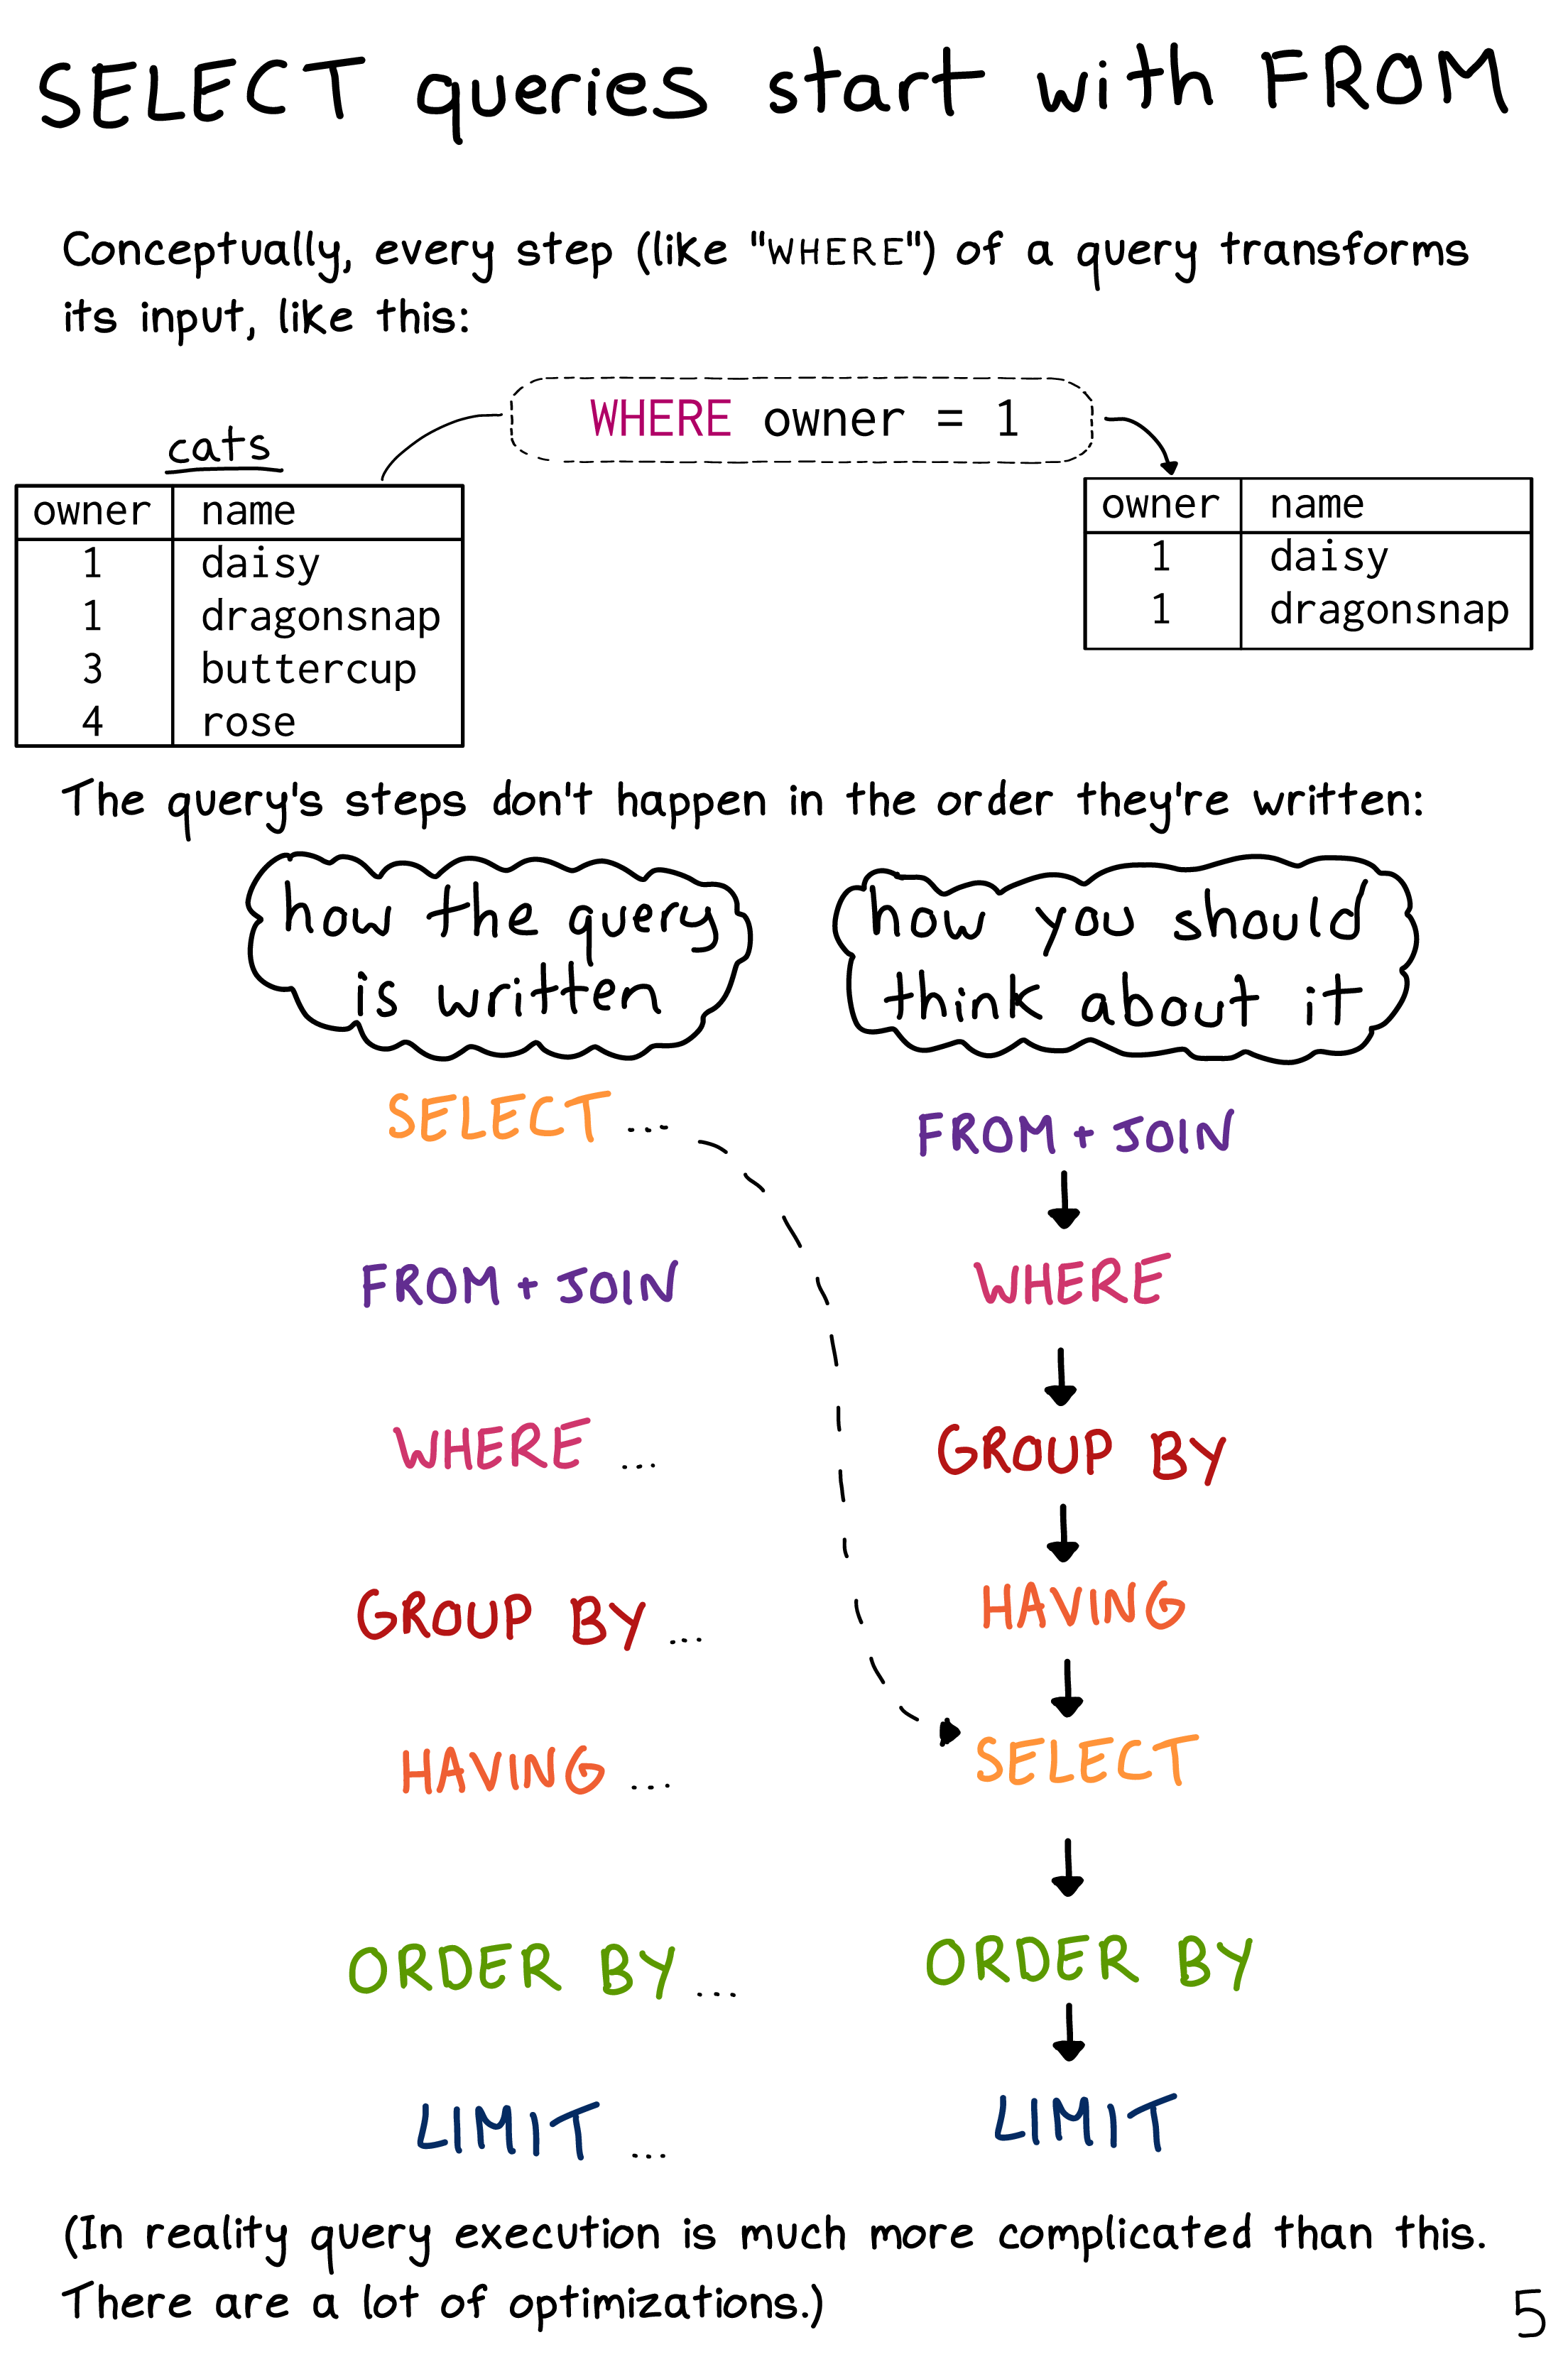 SELECT queries start with FROM
Conceptually, every step (like "WHERE") of a query transforms
its input, like this:
WHERE owner = 1
cats
owner name
1 daisy
1 dragonsnap
3 buttercup
4 rose
owner name
1 daisy
1 dragonsnap
The query's steps don't happen in the order they're written:
how the query
is written
SELECT ...
FROM + JOIN
WHERE ...
GROUP BY ...
HAVING ...
ORDER BY ...
LIMIT ...
how you should
think about it
FROM + JOIN
WHERE
GROUP BY
HAVING
SELECT
ORDER BY
LIMIT
(In reality query execution is much more complicated than this.
There are a lot of optimizations.)
5